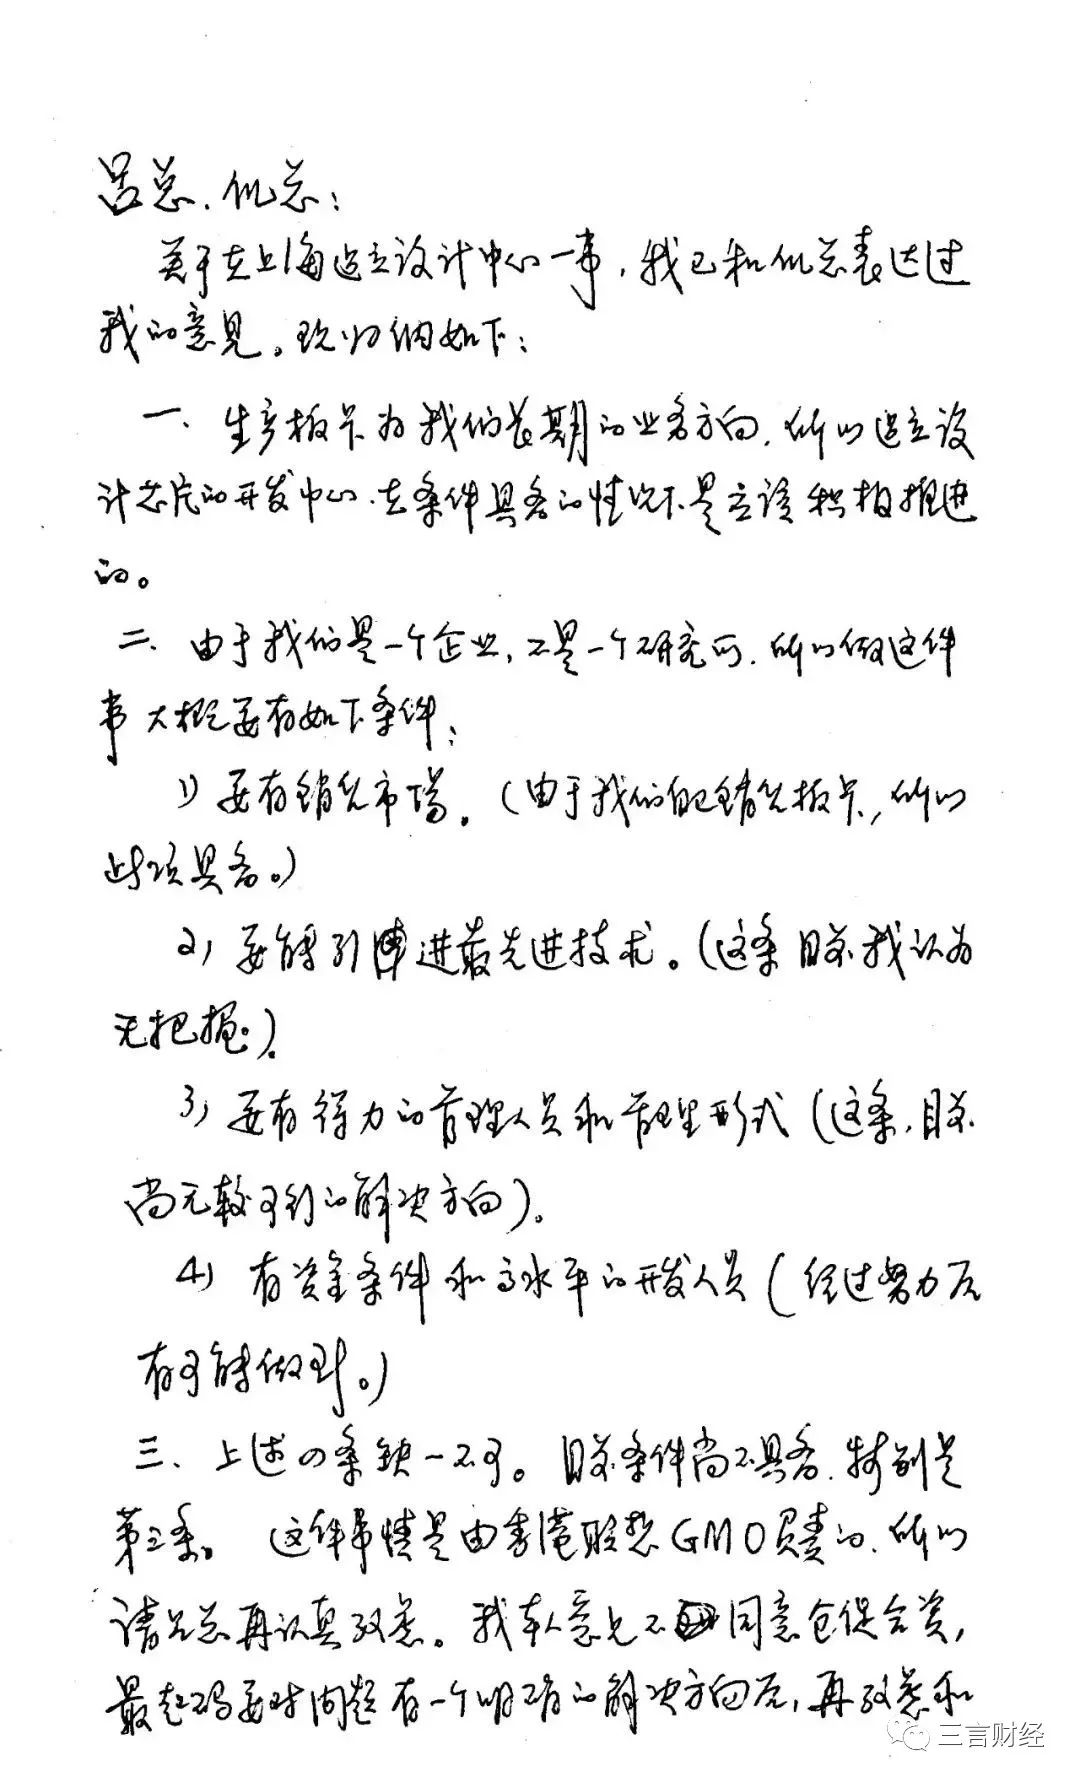 吕总、倪总：
关于在上海建立设计中心一事，我已和倪总表达过
我的意见。现归纳如下：
一、生产板卡为我们长期的业务方向，所以建立设
计芯片的开发中心，在条件具备的情况下是应该积极推进
的。
二、由于我们是一个企业，不是一个研究所，所以做这件
事大概要有如下条件：
1）要有销售市场。（由于我们自己销售板卡，所以
此项具备。）
2）要能引进最先进技术。（这条目前我认为
无把握。）
3）要有得力的管理人员和管理形式（这条，目前
尚无较可行的解决方向）。
4）有资金条件和高水平的开发人员（经过努力后
有可能做到。）
三、上述四条缺一不可。目前条件尚不具备，特别是
第三条。这件事情是由香港联想GMO负责的，所以
请吕总再认真考虑。我本人意见不同意仓促合资，
最起码要对问题有一个明确的解决方向后，再考虑和
三言财经